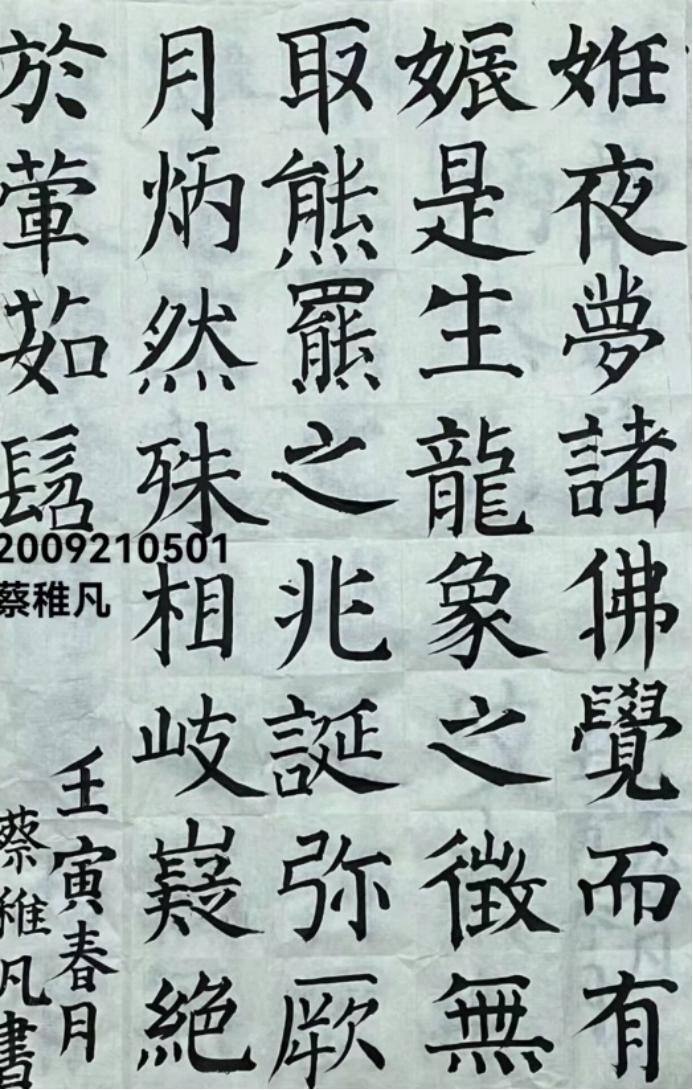 姙夜夢諸佛覺而有
娠是生龍象之徵無
取熊羆之兆誕弥厥
月炳然殊相岐嶷絶
於葷茹髫
2009210501
蔡稚凡
壬寅春月
蔡稚凡書